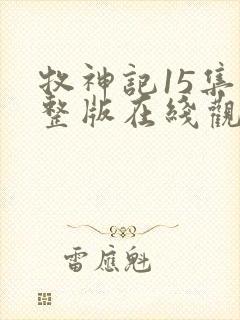 牧神記15集
整版在綫觀
雷應魁